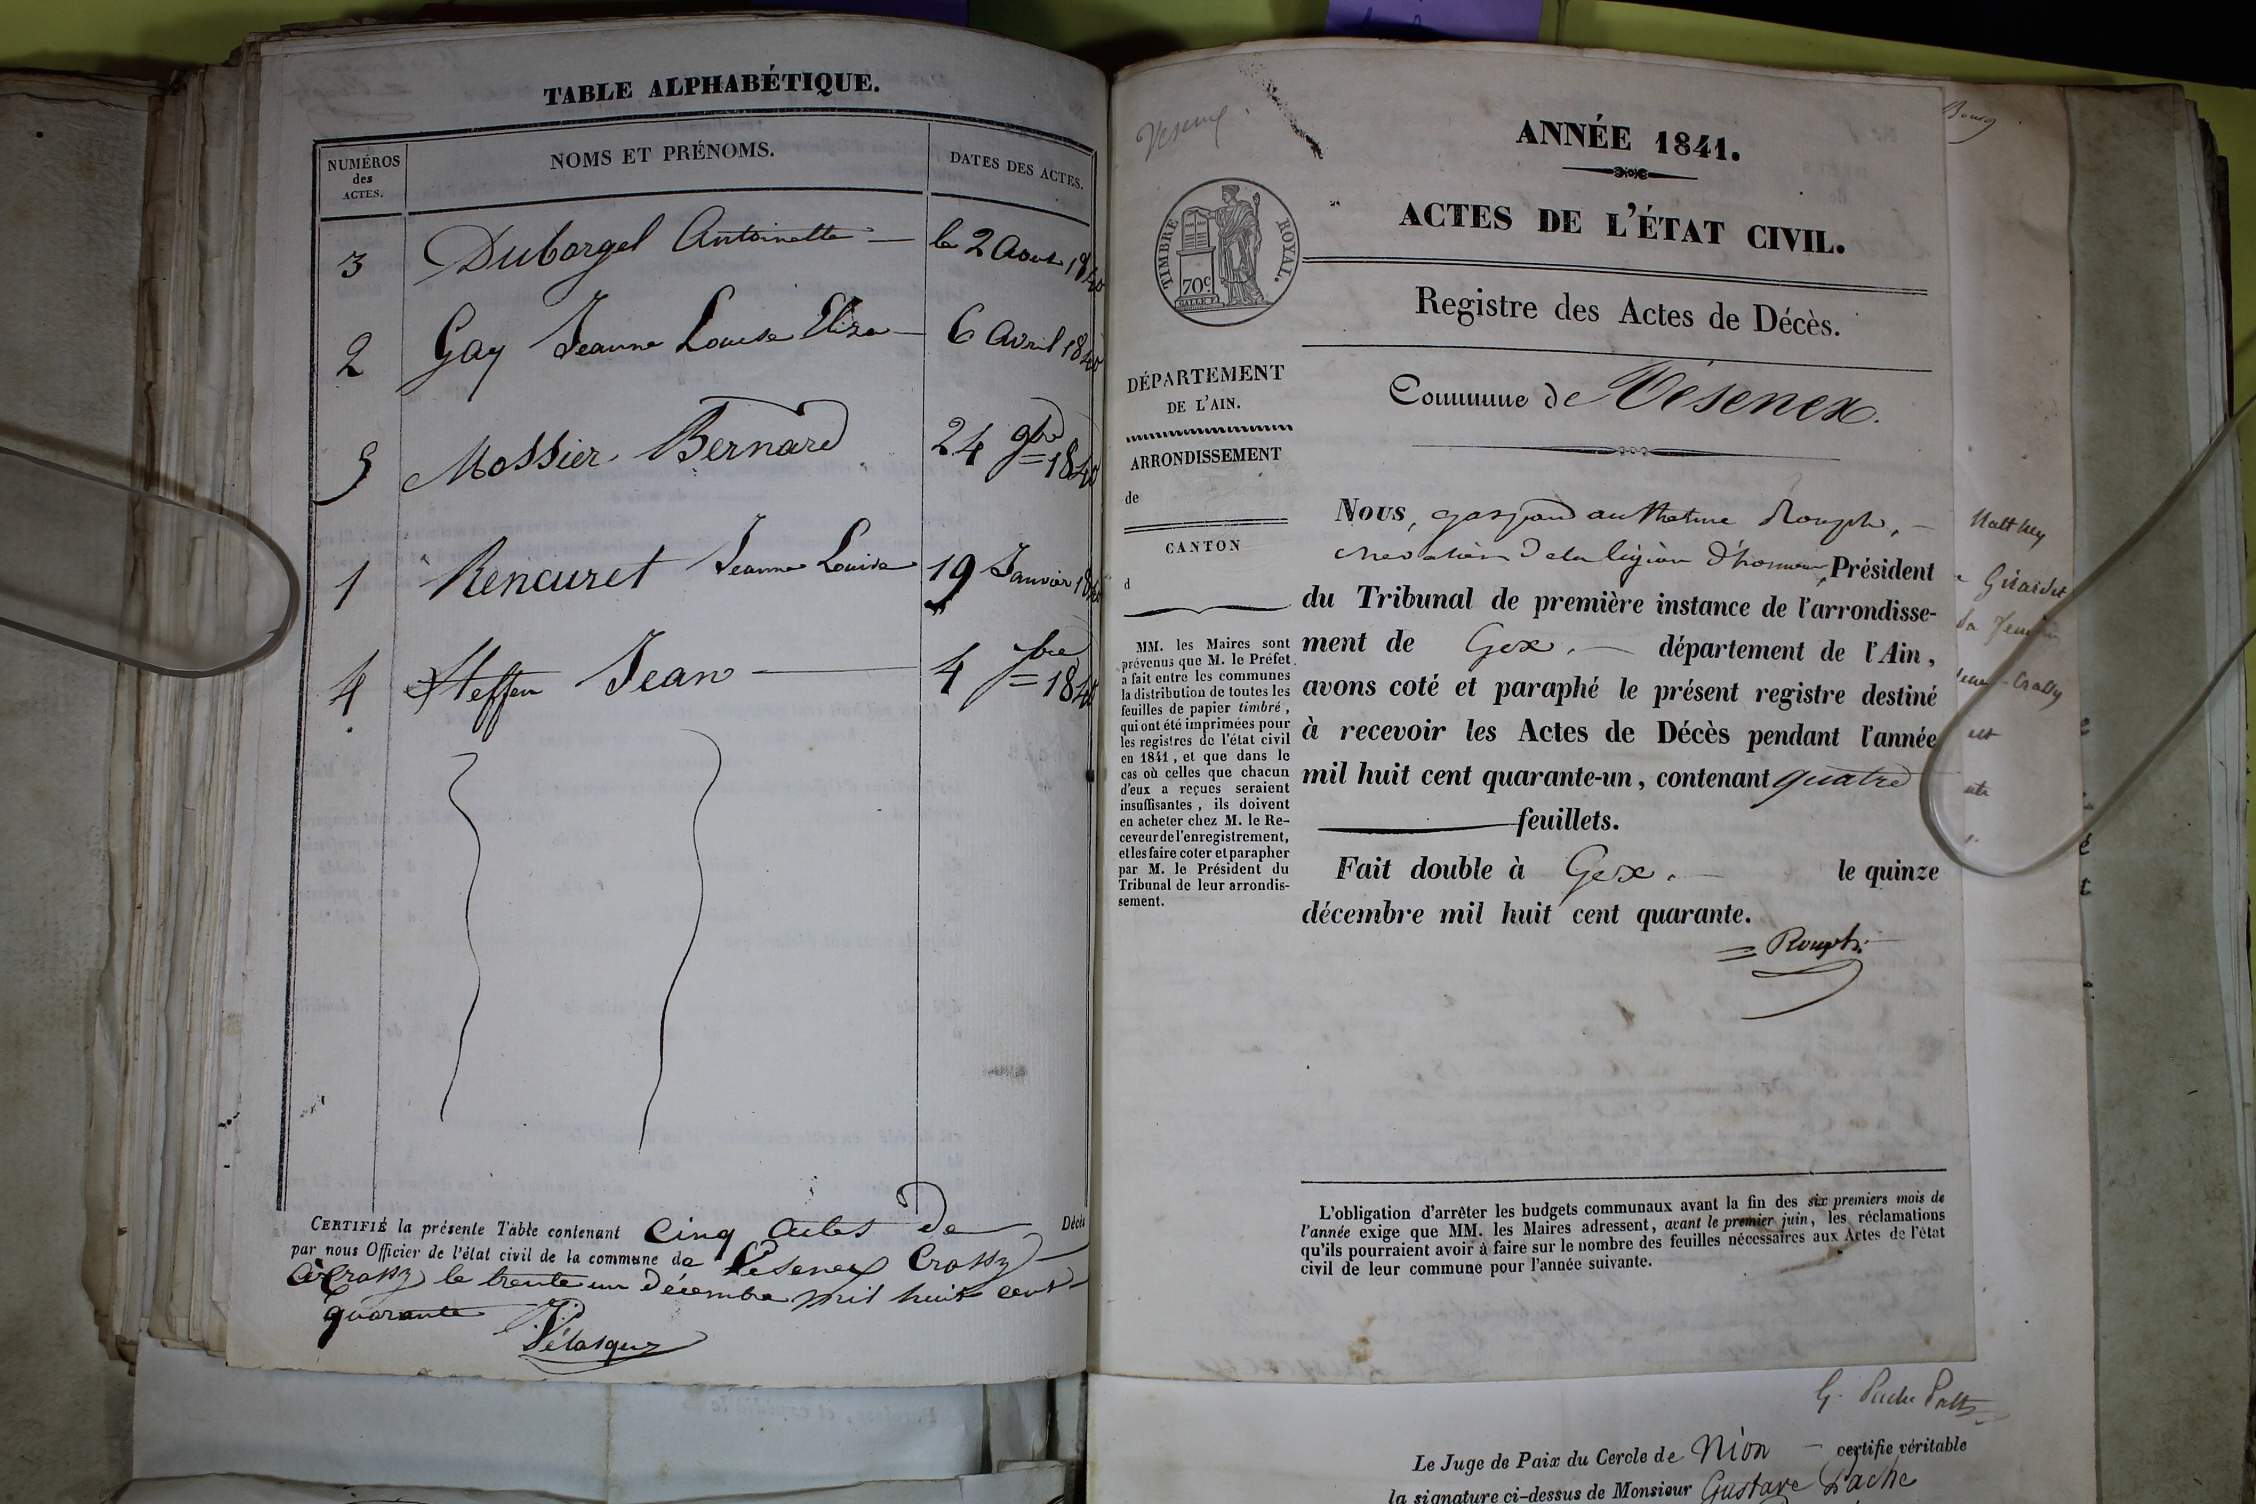 TABLE ALPHABÉTIQUE.
NUMÉROS
des
ACTES.
NOMS ET PRÉNOMS.
DATES DES ACTES.
3 Duborgel Antoinette — le 2 Aout 1840
2 Gay Jeanne Louise Eliza — 6 Avril 1840
5 Mossier Bernard 24 9bre 1840
1 Rencuret Jeanne Louise 19 Janvier 1840
4 Steffen Jean — 4 7bre 1840
CERTIFIÉ la présente Table contenant Cinq Actes De Décès
par nous Officier de l'état civil de la commune de Vesenex Crassy
à Crassy le trente un décembre mil huit cent
quarante
Vélasquez
Vesenex
ANNÉE 1841.
ACTES DE L'ÉTAT CIVIL.
TIMBRE ROYAL.
70c
Registre des Actes de Décès.
Commune de Vésenex.
DÉPARTEMENT
DE L'AIN.
ARRONDISSEMENT
de
CANTON
d
MM. les Maires sont
prévenus que M. le Préfet
a fait entre les communes
la distribution de toutes les
feuilles de papier timbré,
qui ont été imprimées pour
les registres de l'état civil
en 1841, et que dans le
cas où celles que chacun
d'eux a reçues seraient
insuffisantes, ils doivent
en acheter chez M. le Re-
ceveur de l'enregistrement,
et les faire coter et parapher
par M. le Président du
Tribunal de leur arrondis-
sement.
Nous, gaspard anthelme Rouph, —
chevalier de la légion d'honneur, Président
du Tribunal de première instance de l'arrondisse-
ment de Gex. — département de l'Ain,
avons coté et paraphé le présent registre destiné
à recevoir les Actes de Décès pendant l'année
mil huit cent quarante-un, contenant quatre
feuillets.
Fait double à Gex. — le quinze
décembre mil huit cent quarante.
Rouph
L'obligation d'arrêter les budgets communaux avant la fin des six premiers mois de
l'année exige que MM. les Maires adressent, avant le premier juin, les réclamations
qu'ils pourraient avoir à faire sur le nombre des feuilles nécessaires aux Actes de l'état
civil de leur commune pour l'année suivante.
Matthey
Girardet
Crassy
G. Pache
Le Juge de Paix du Cercle de Nion — certifie véritable
la signature ci-dessus de Monsieur Gustave Pache